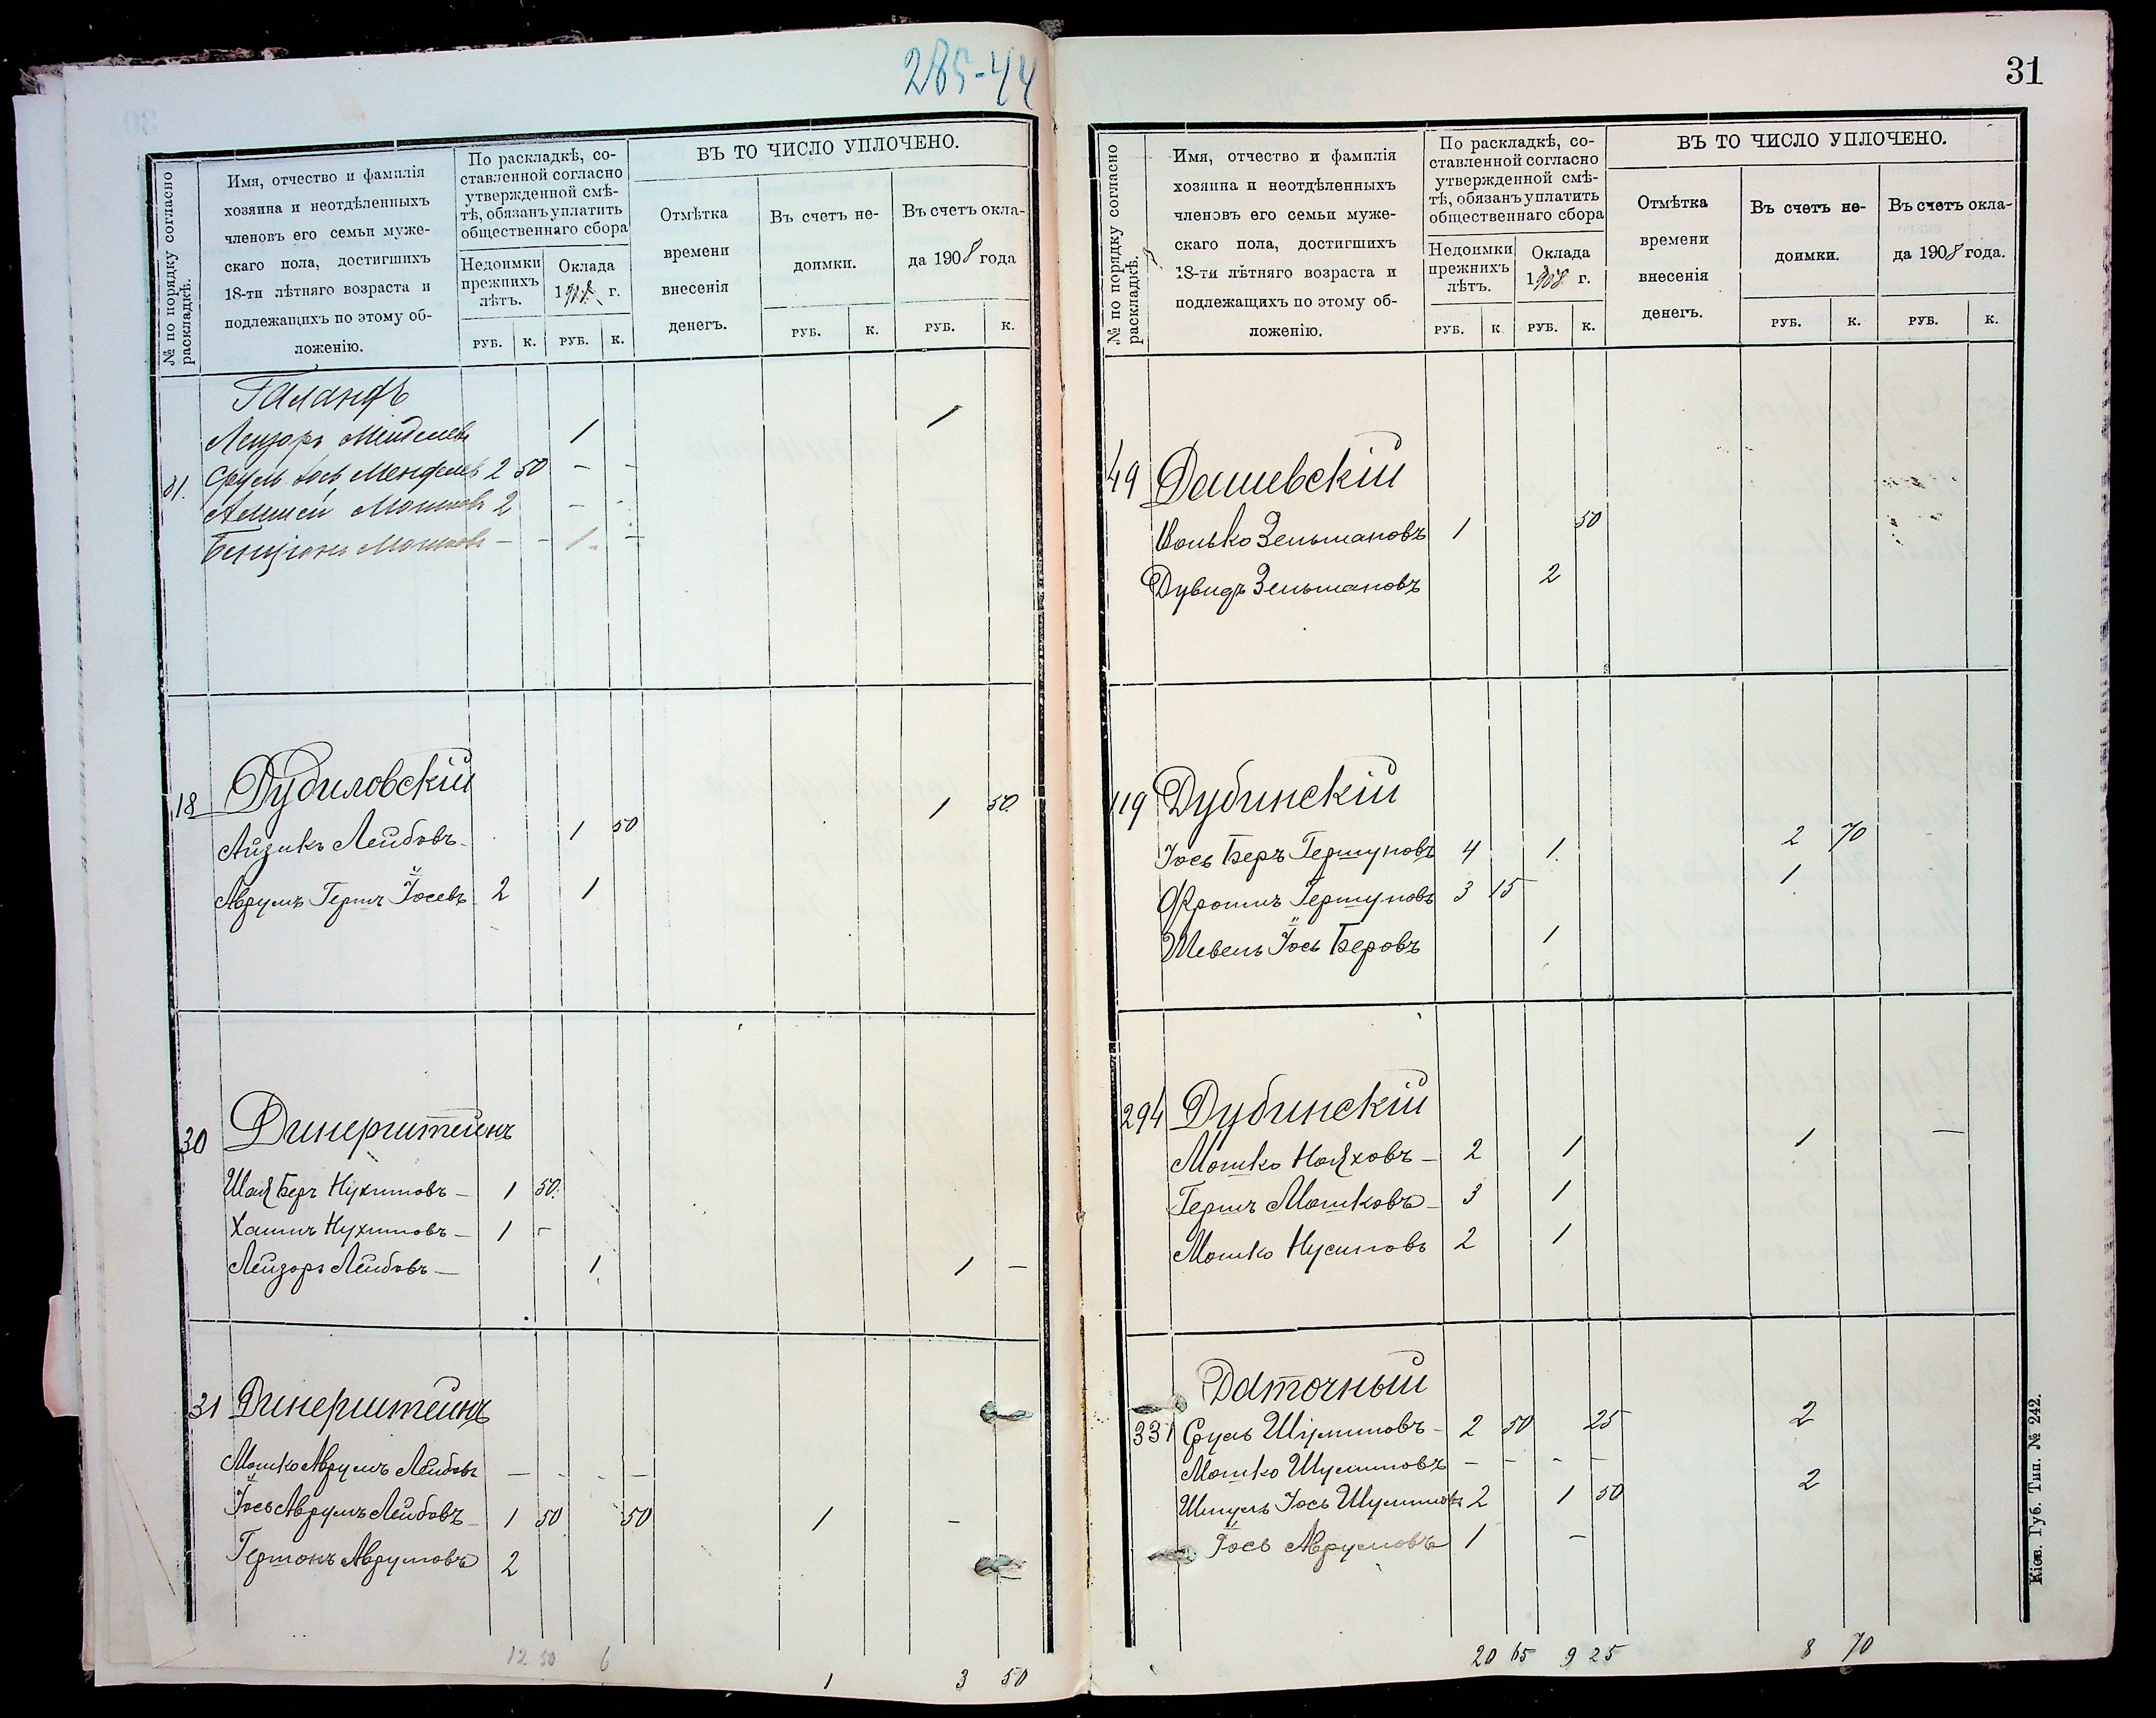 285-44
№ по порядку согласно раскладкѣ.
Имя, отчество и фамилія
хозяина и неотдѣленныхъ
членовъ его семьи муже-
скаго пола, достигшихъ
18-ти лѣтняго возраста и
подлежащихъ по этому об-
ложенію.
По раскладкѣ, со-
ставленной согласно
утвержденной смѣ-
тѣ, обязанъ уплатить
общественнаго сбора
Недоимки прежнихъ лѣтъ.
Оклада 1908 г.
ВЪ ТО ЧИСЛО УПЛОЧЕНО.
Отмѣтка времени внесенія денегъ.
Въ счетъ не-
доимки.
Въ счетъ окла-
да 1908 года
РУБ. К. РУБ. К. РУБ. К. РУБ. К.
Галандъ
Лейзоръ Менделевъ 1 1
Сруль Іось Менделев 2 50 — —
Мошковъ 2 — —
Бенціонъ Мошковъ — — 1 —
18 Дубиловскій
Айзикъ Лейбовъ 1 50 1 50
Аврумъ Гершъ Іосевъ 2 1
30 Динерштейнъ
Шая Беръ Нухимовъ — 1 50
Хаимъ Нухимовъ — 1 -
Лейзоръ Лейбовъ — 1 1 —
31 Динерштейнъ
Мошко Аврумъ Лейбовъ — - - —
Іось Аврумъ Лейбовъ 1 50 50 1 -
Гершонъ Аврумовъ 2
12 50 6 1 3 50
31
№ по порядку согласно раскладкѣ.
Имя, отчество и фамилія
хозяина и неотдѣленныхъ
членовъ его семьи муже-
скаго пола, достигшихъ
18-ти лѣтняго возраста и
подлежащихъ по этому об-
ложенію.
По раскладкѣ, со-
ставленной согласно
утвержденной смѣ-
тѣ, обязанъ уплатить
общественнаго сбора
Недоимки прежнихъ лѣтъ.
Оклада 1908 г.
ВЪ ТО ЧИСЛО УПЛОЧЕНО.
Отмѣтка времени внесенія денегъ.
Въ счетъ не-
доимки.
Въ счетъ окла-
да 1908 года.
РУБ. К РУБ. К. РУБ. К. РУБ. К.
49 Дашевскій
Волько Зельмановъ 1 50
Дувидъ Зельмановъ 2
119 Дубинскій
Іось Беръ Гершуновъ 4 1 2 70
Фроимъ Гершуновъ 3 15 1
Шевель Іось Беровъ 1
294 Дубинскій
Мошко Нояховъ — 2 1 1 —
Гершъ Мошковъ — 3 1
Мошко Нусиновъ 2 1
Даточный
331 Сруль Шулимовъ - 2 50 25 2
Мошко Шулимовъ - - - -
Шмуль Іось Шулимовъ 2 1 50 2
Іось Аврумовъ 1 —
20 65 9 25 8 70
Кіев. Губ. Тип. № 242.